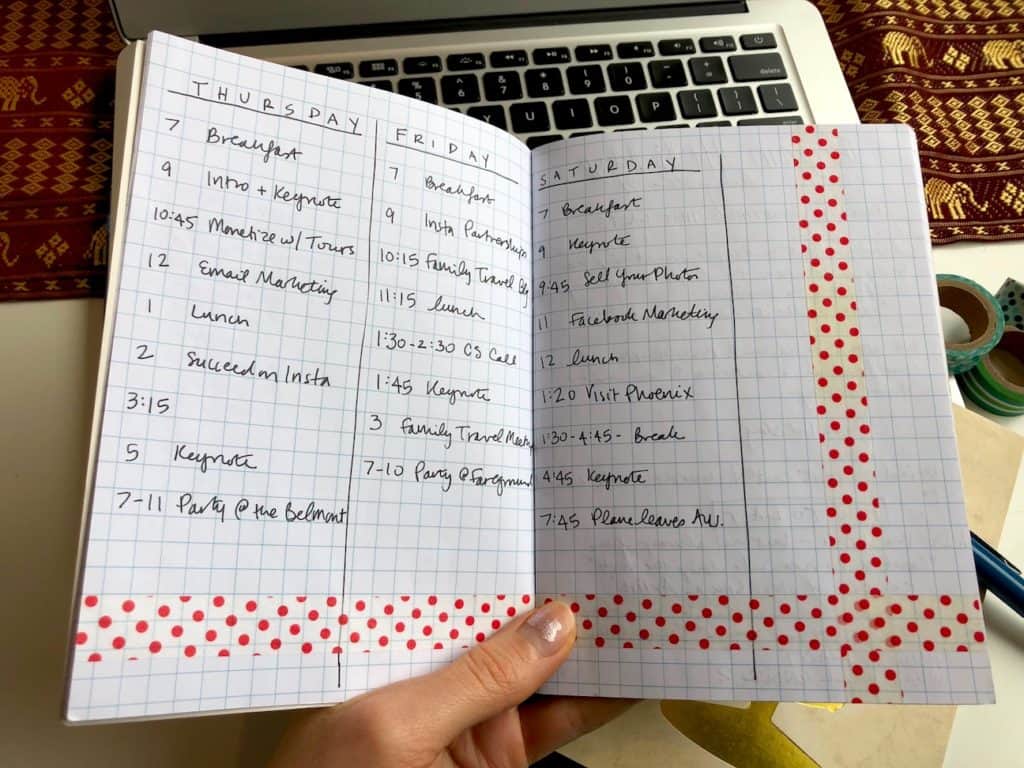 THURSDAY
7 Breakfast
9 Intro + Keynote
10:45 Monetize w/ Tours
12 Email Marketing
1 Lunch
2 Succeed on Insta
3:15
5 Keynote
7-11 Party @ the Belmont
FRIDAY
7 Breakfast
9 Insta Partnerships
10:15 Family Travel
11:15 lunch
1:30-2:30 CS Call
1:45 Keynote
3 Family Travel
7-10 Party @
SATURDAY
7 Breakfast
9 Keynote
9:45 Sell Your Photos
11 Facebook Marketing
12 lunch
1:20 Visit Phoenix
1:30-4:45- Break
4:45 Keynote
7:45 Plane leaves Au.
delete
Y U I O P